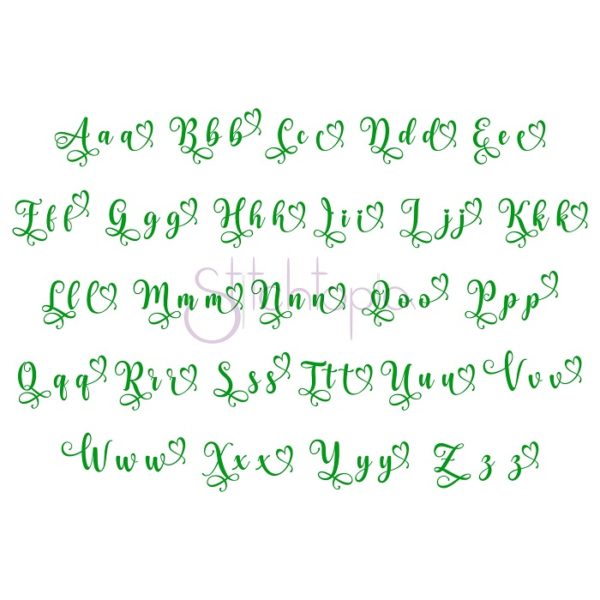 Aaa Bbb Ccc Ddd Eee
Fff Ggg Hhh Iii Jjj Kkk
Lll Mmm Nnn Ooo Ppp
Stitchtopia
Qqq Rrr Sss Ttt Uuu Vvv
Www Xxx Yyy Zzz